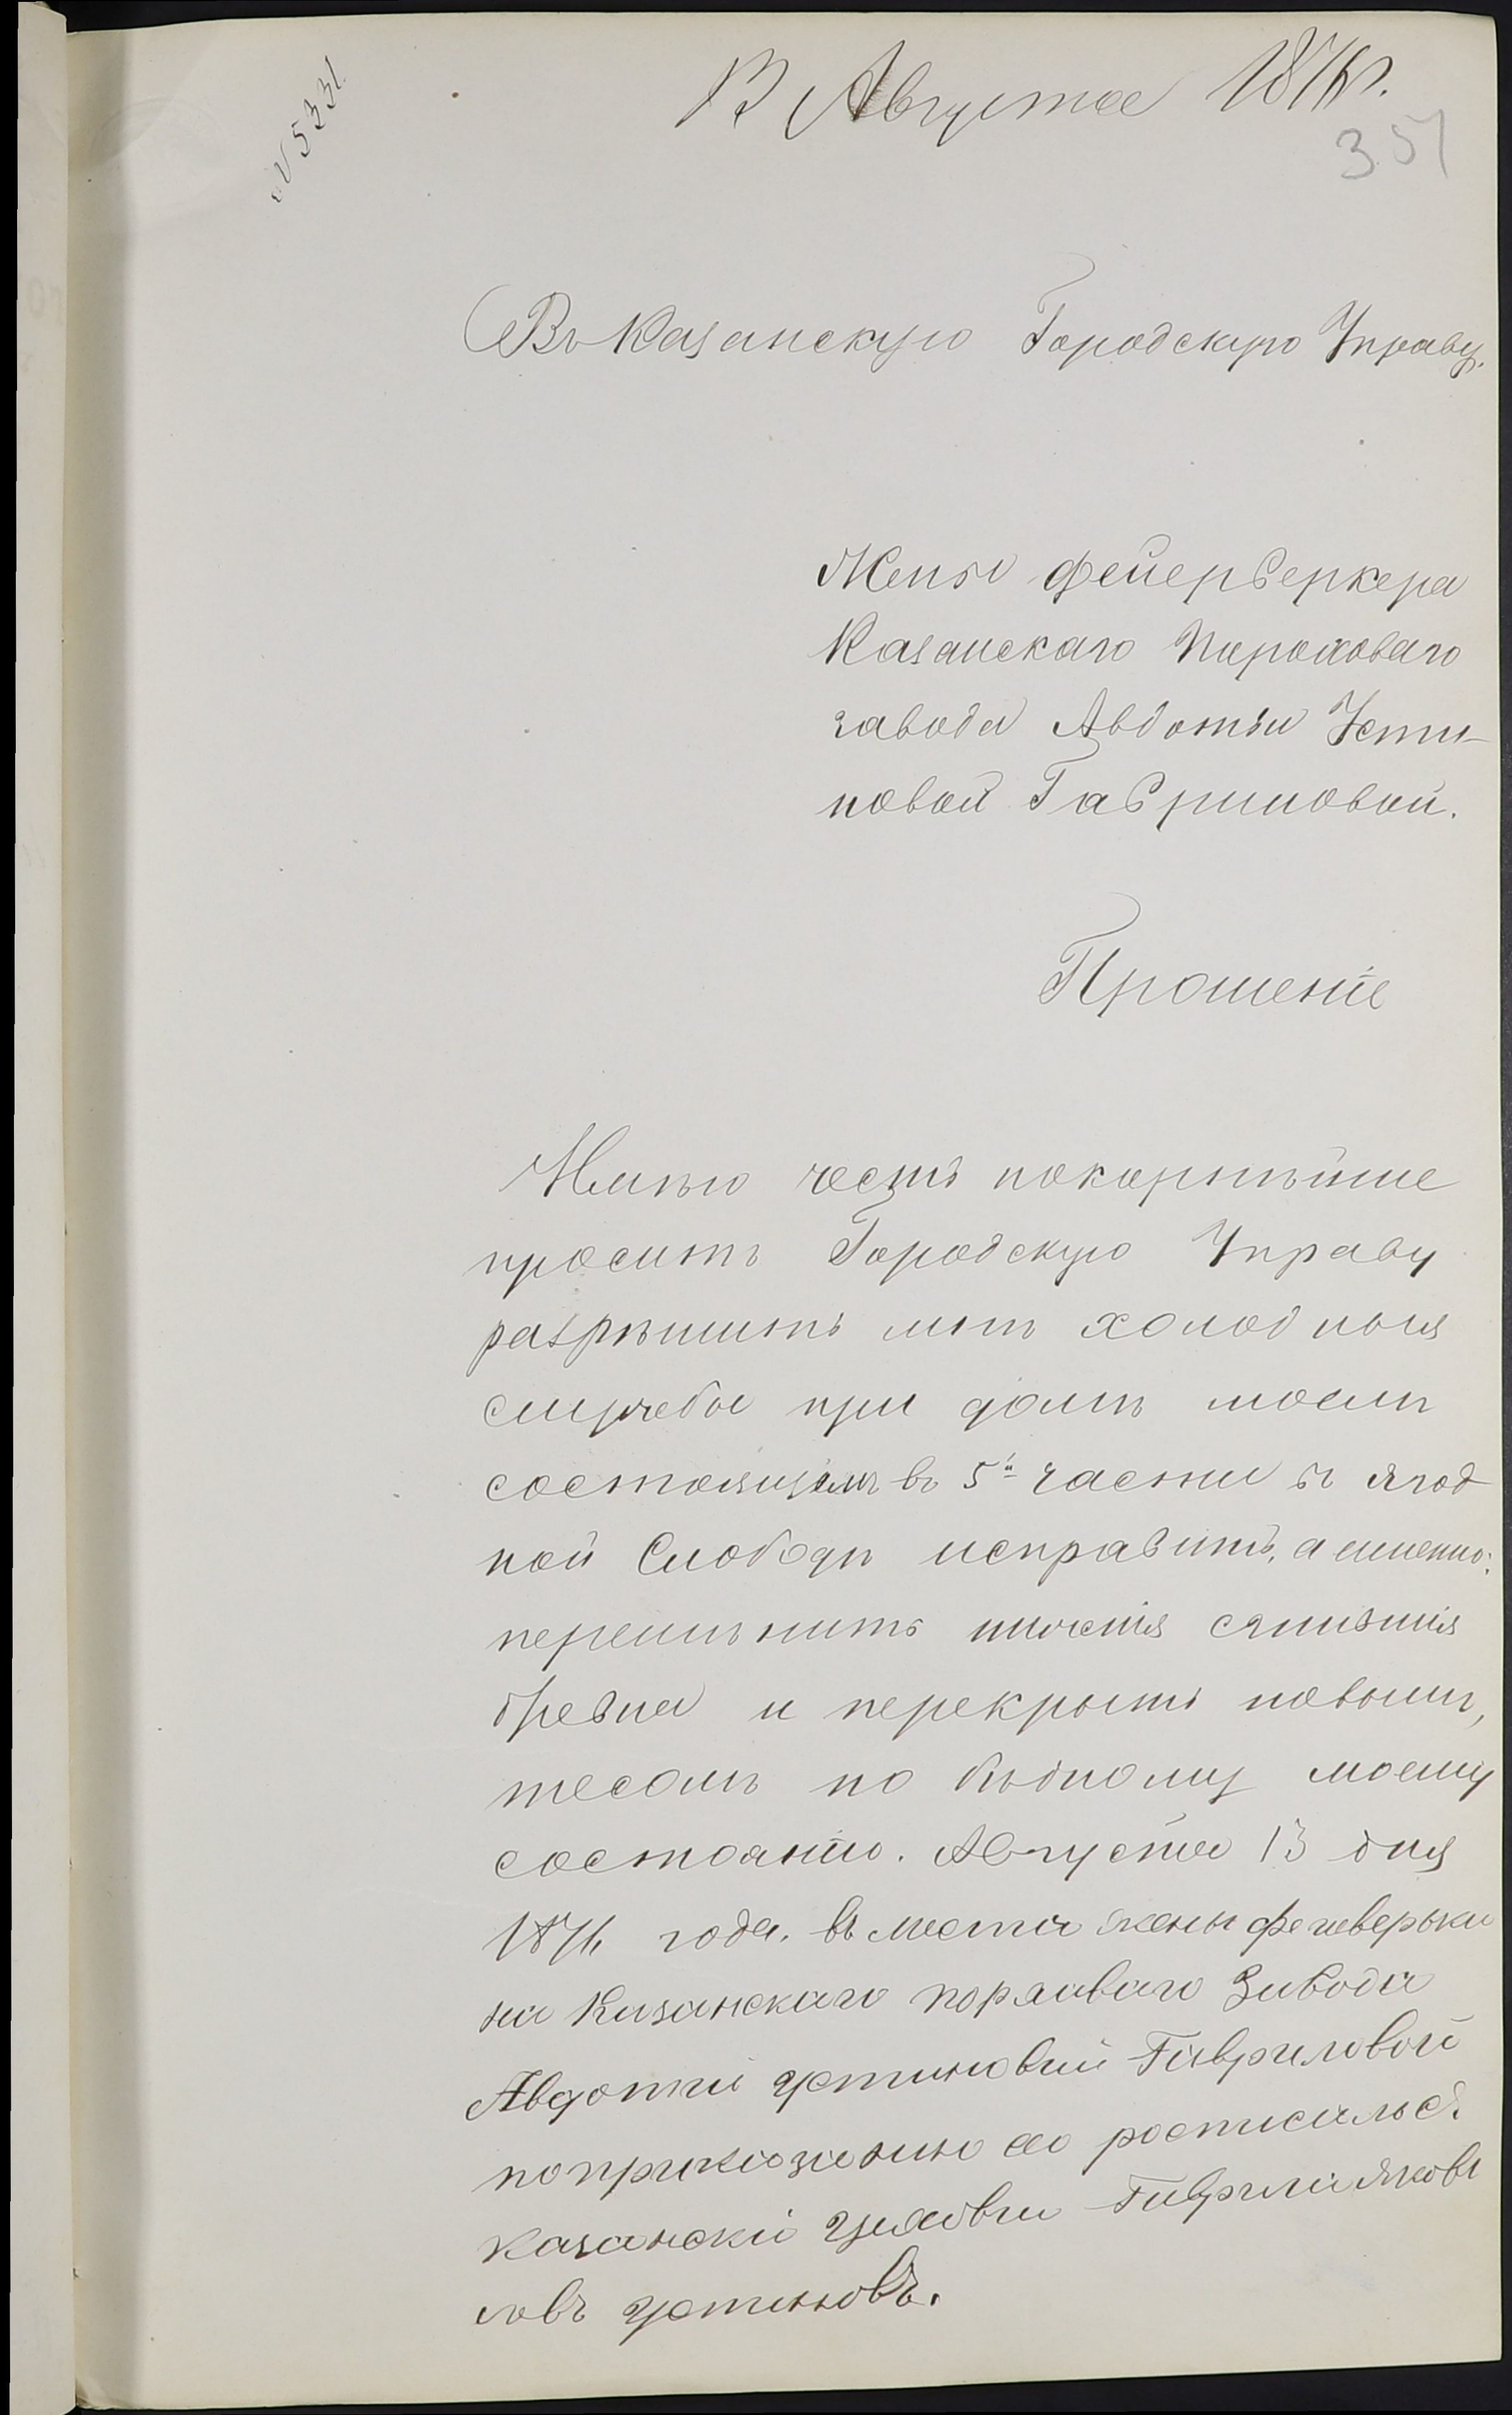 № 5331
13 Августа 1876 г.
351
Въ Казанскую Городскую Управу.
Жены фейерверкера
Казанскаго Пороховаго
завода Авдотьи Усти-
новой Гавриловой.
Прошеніе
Имѣю честь покорнѣйше
просить Городскую Управу
разрѣшить мнѣ холодныя
службы при домѣ моемъ
состоящемъ въ 5й части въ ягод
ной Слободѣ исправить, а именно:
перемѣнить сгнившія
бревна и перекрыть новымъ,
тесомъ по бѣдному моему
состоянію. Августа 13 дня
1876 года. въместа жены фееверьки
на Казанскаго порхаваго Завода
Авдотьи устиновый Гавриловой
поприказанию ее росписался
казанскі цеховы Гаврила Яковь
ловъ устиновъ.